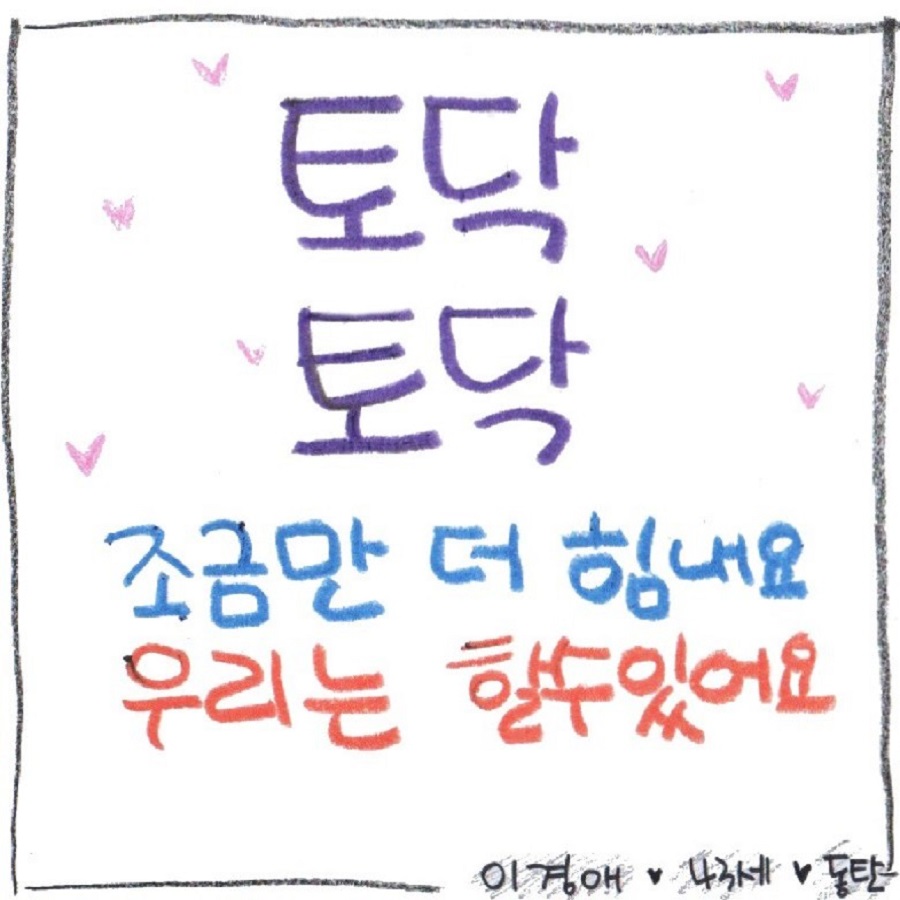 토닥
토닥
조금만 더 힘내요
우리는 할수있어요
이경애 ♥ 43세 ♥ 동탄